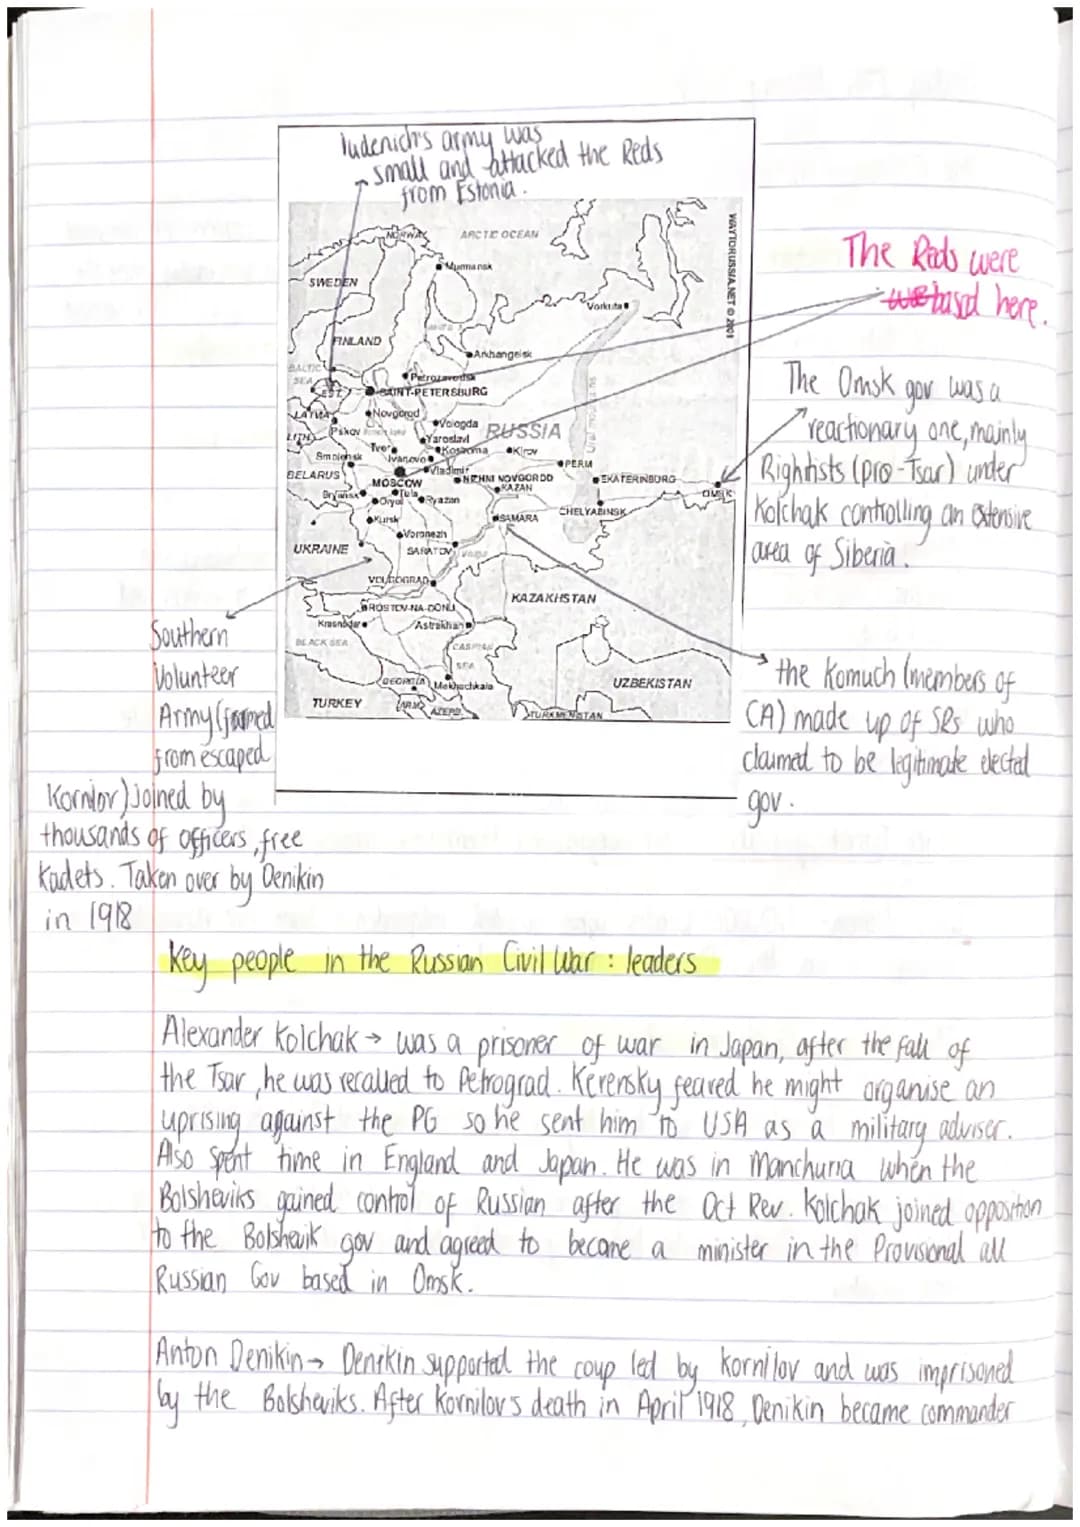 Iudenich's army was
small and attacked the Reds
from Estonia.
WAYTORUSSIA.NET © 2001
NORWAY
ARCTIC OCEAN
Murmansk
SWEDEN
Vorkuta
FINLAND
Arkhangelsk
BALTIC
SEA
Petrozavodsk
EST.
SAINT-PETERSBURG
LATVIA
Novgorod
Vologda
Pskov
RUSSIA
Ural mountains
LITH.
Yaroslavl
Tver
Kostroma
Kirov
Smolensk
Ivanovo
PERM
BELARUS
Vladimir
MOSCOW
NIZHNI NOVGOROD
EKATERINBURG
KAZAN
OMSK
Bryansk
Tula
Oryol
Ryazan
CHELYABINSK
Kursk
SAMARA
Voronezh
UKRAINE
SARATOV
Volga
VOLGOGRAD
KAZAKHSTAN
ROSTOV-NA-DONU
Krasnodar
Astrakhan
BLACK SEA
CASPIAN
SEA
GEORGIA
Makhachkala
UZBEKISTAN
TURKEY
ARM.
AZERB.
TURKMENISTAN
The Reds were
based here.
The Omsk gov was a
reactionary one, mainly
Rightists (pro-Tsar) under
Kolchak controlling an extensive
area of Siberia.
the Komuch (members of
CA) made up of SRs who
claimed to be legitimate elected
gov.
Southern
Volunteer
Army (formed
from escaped
Kornilov) joined by
thousands of officers, free
Kadets. Taken over by Denikin
in 1918
Key people in the Russian Civil War : leaders
Alexander Kolchak → was a prisoner of war in Japan, after the fall of
the Tsar, he was recalled to Petrograd. Kerensky feared he might organise an
uprising against the PG so he sent him to USA as a military adviser.
Also spent time in England and Japan. He was in Manchuria when the
Bolsheviks gained control of Russian after the Oct Rev. Kolchak joined opposition
to the Bolshevik gov and agreed to became a minister in the Provisional all
Russian Gov based in Omsk.
Anton Denikin → Denikin supported the coup led by Kornilov and was imprisoned
by the Bolsheviks. After Kornilov's death in April 1918, Denikin became commander